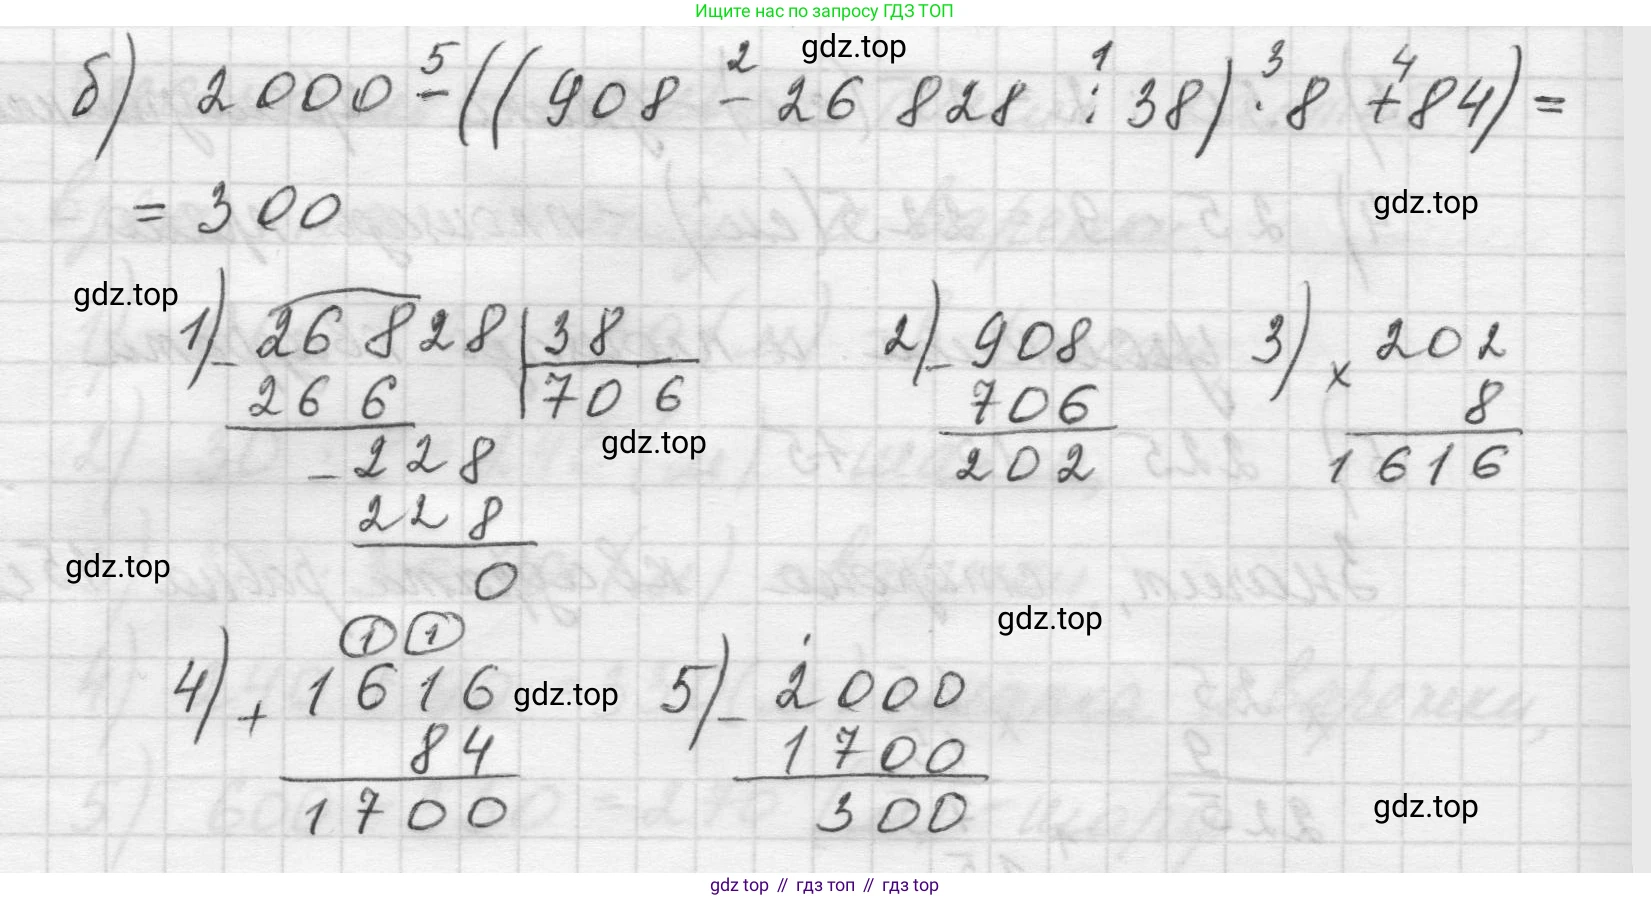 Ищите нас по запросу ГДЗ ТОП
gdz.top
б) 2000 - ((908 - 26 828 : 38) · 8 + 84) =
5 2 1 3 4
= 300
gdz.top
gdz.top
1) - 26 828 | 38
266 706
- 228
228
0
gdz.top
2) - 908
706
202
3) × 202
8
1616
gdz.top
gdz.top
1 1
4) + 1616
84
1700
gdz.top
5) - 2000
1700
300
gdz.top
gdz top // гдз топ // gdz top